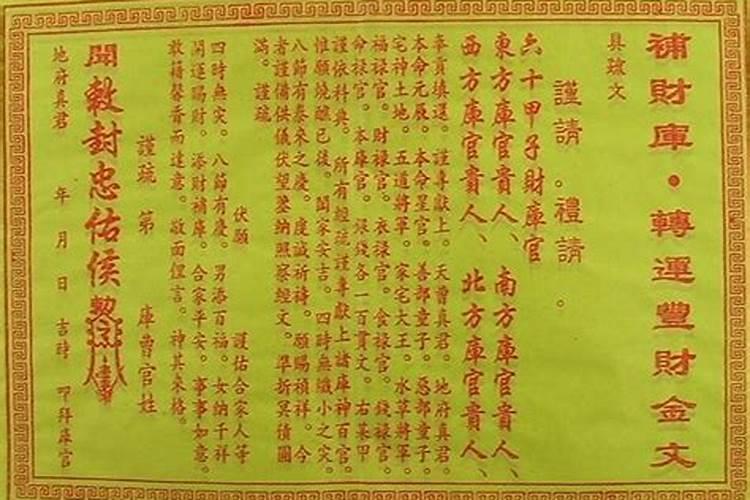 補財庫・轉運豐財金文
具疏文
謹請。禮請。
六十甲子財庫官
東方庫官貴人、南方庫官貴人、
西方庫官貴人、北方庫官貴人、
奉貢填還。謹專獻上。天曹真君。地府真君。
本命元辰。本命星官。善部童子。惡部童子。
宅神土地。五道將軍。家宅大王。水草將軍。
福祿官。財祿官。衣祿官。食祿官。錢祿官。
命祿官。本庫官。銀錢各一百貫文。右某甲
謹依科典。所有經疏謹專獻上諸庫神百官。
惟願燒醮已後。閤家安吉。四時無纖小之灾。
八節有泰來之慶。虔誠祈禱。願賜禎祥。今
者謹備供儀伏望鑒納照察經文。準折冥債圓
滿。謹疏。
伏願　護佑合家人等
四時無灾。八節有慶。男添百福。女納千祥
開運賜財。添財補庫。合家平安。事事如意。
敢藉馨香而達意。敬面俚言。神其來格。
謹疏　第　庫曹官姓
聞敕封忠佑侯
地府真君　年　月　日　吉時　叩拜庫官